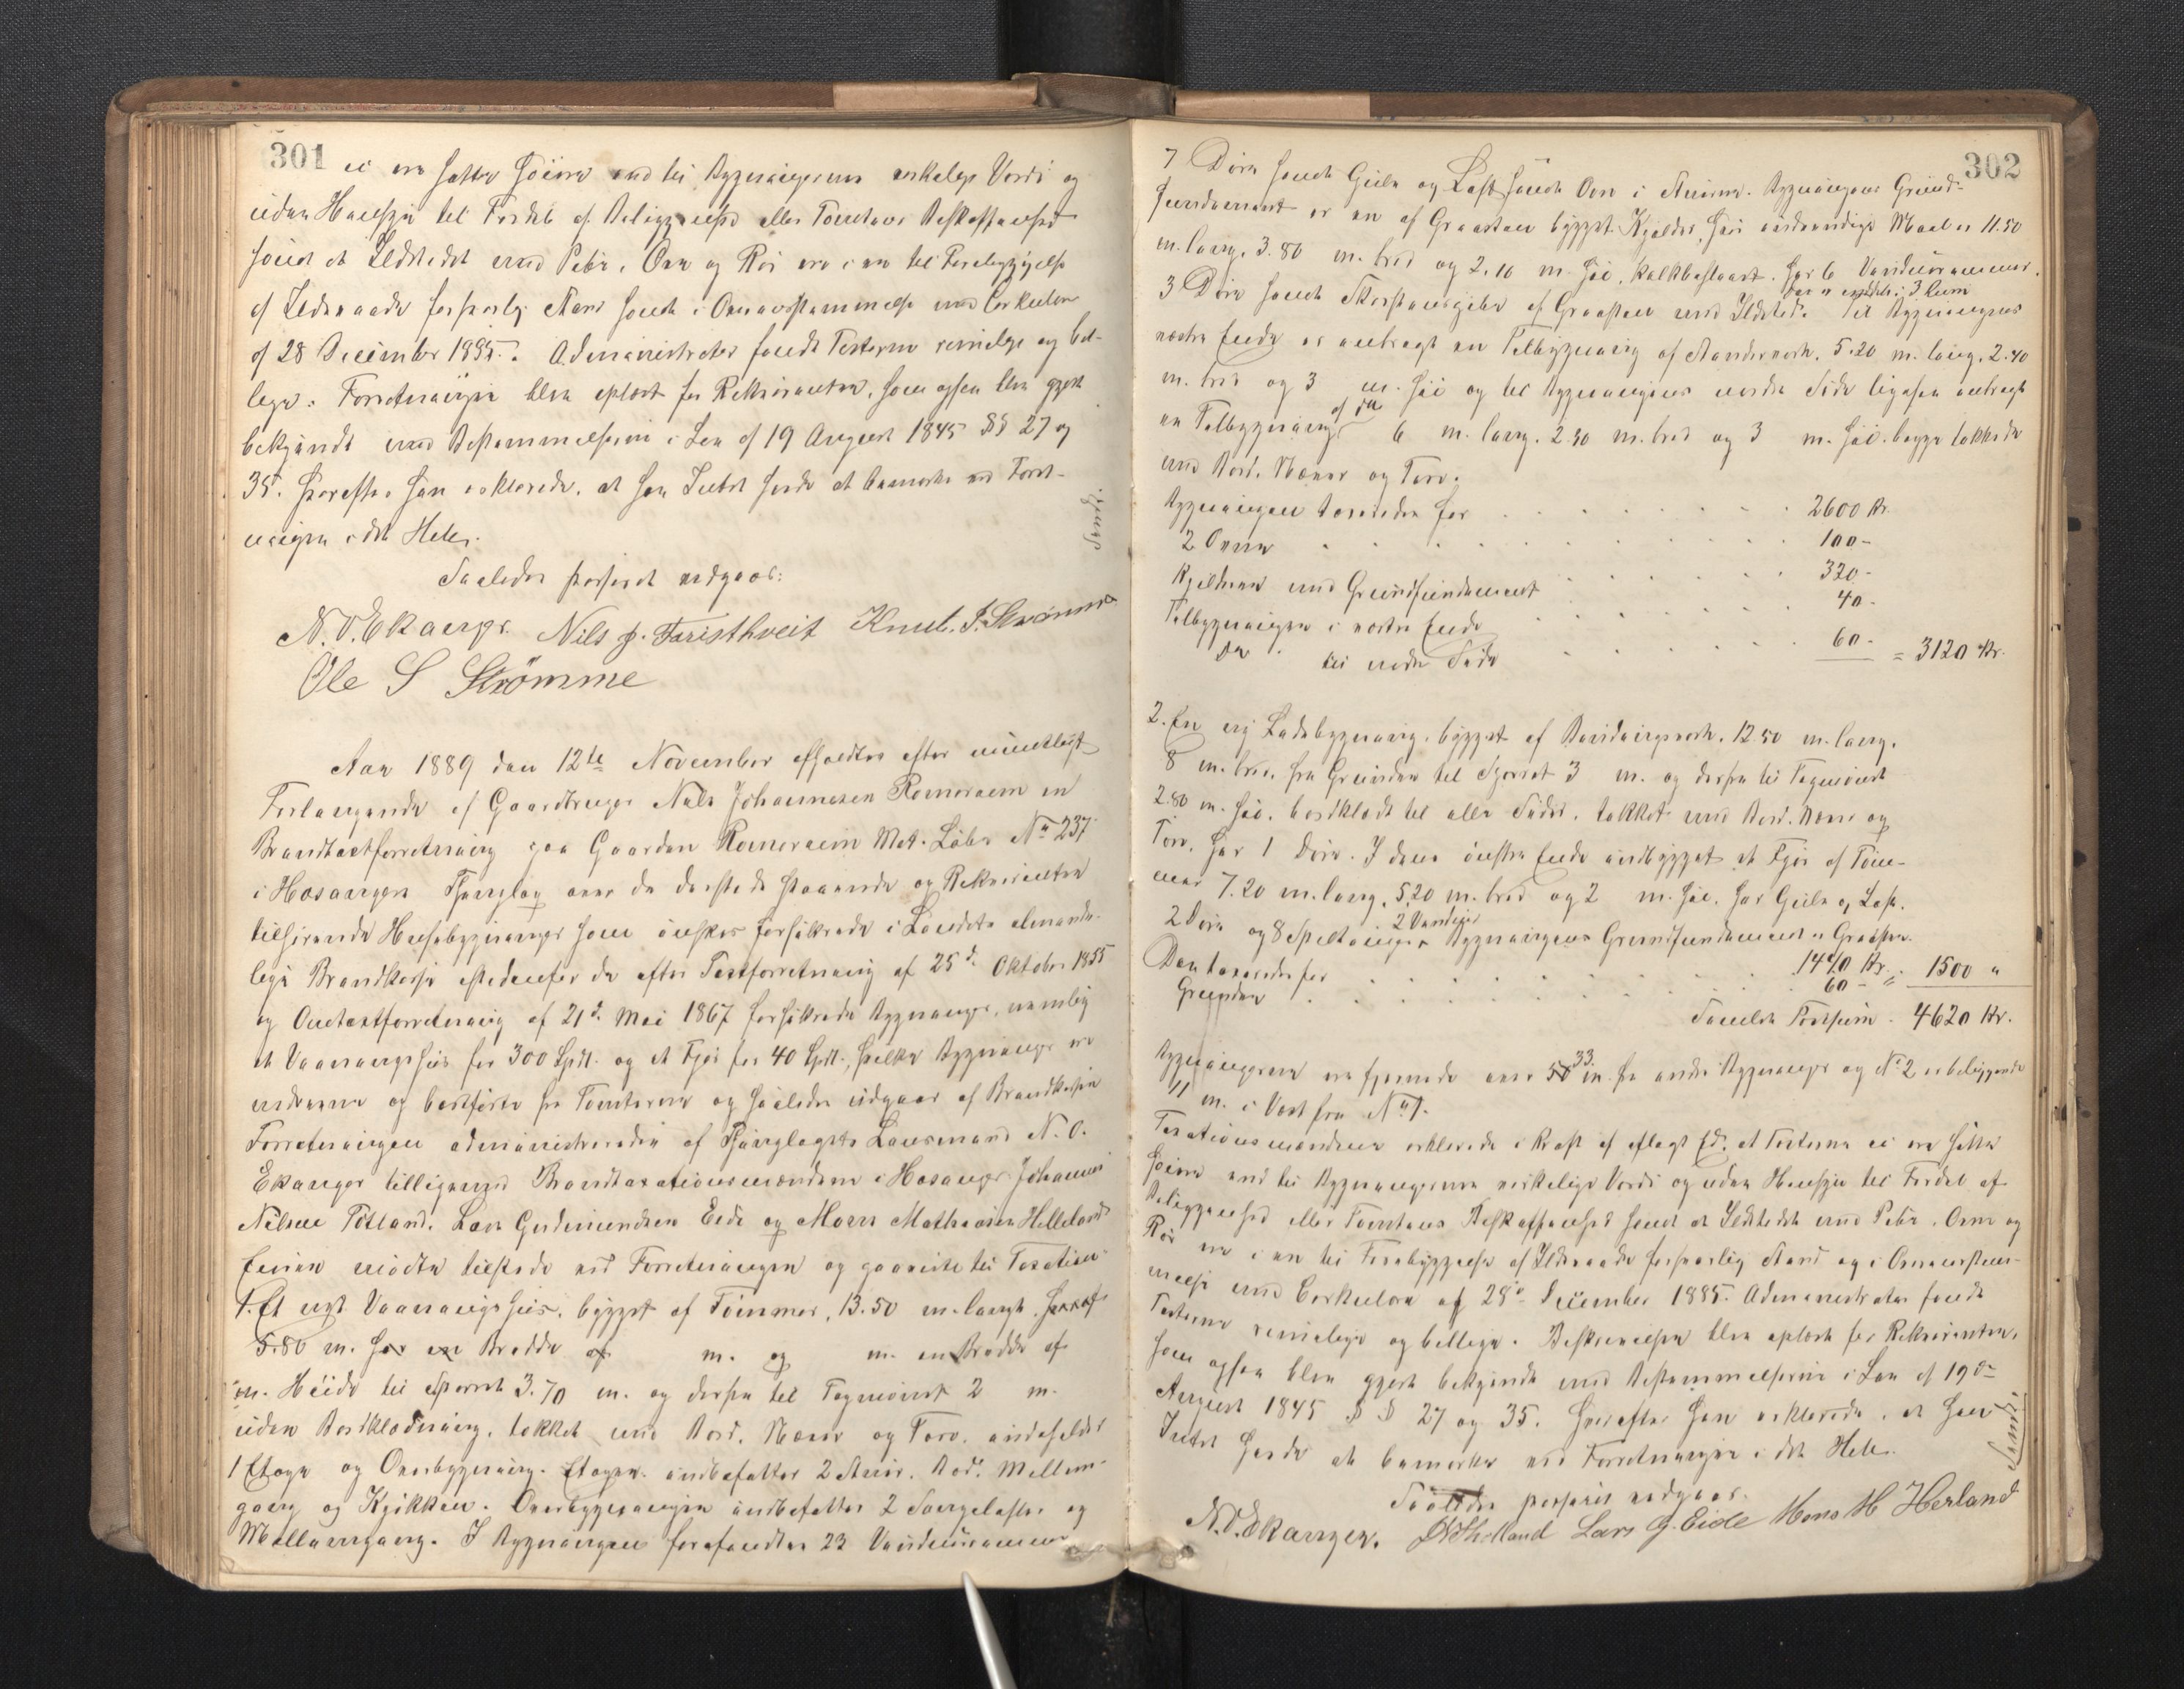 301
ei ere satte høiere end til Bygningernes virkelige Værdi og
uden Hensyn til Fordel af Beliggenhed eller Tomtens Beskaffenhed
samt at Ildstedet med Pibe, Ovn og Rør ere i en til Forebyggelse
af Ildsvaade forsvarlig Stand samt i Overensstemmelse med Cirkulære
af 28 December 1885. Administrator fandt Taxterne rimelige og bil-
lige. Forretningen blev oplæst for Rekvirenten, som ogsaa blev gjort
bekjendt med Bestemmelserne i Lov af 19 August 1845 §§ 27 og
35. Hvorefter han erklærede, at han Intet havde at bemærke ved Forret-
ningen i det Hele.
Saaledes passeret vedgaaes:
N. O. Ekanger. Nils J. Faristhveit Knut. J. Strømme
Ole S Strømme
Aar 1889 den 12te November afholdtes efter mundtligt
Forlangende af Gaardbruger Nils Johannesen Romeraim en
Brandtaxtforretning paa Gaarden Romeraim Mat. Løbe No 237
i Hosangers Thinglag over de dersteds staaende og Rekvirenten
tilhørende Husebygninger som ønskes forsikrede i Landets alminde-
lige Brandkasse istedenfor de efter Taxtforretning af 25d. Oktober 1855
og Omtaxtforretning af 21d. Mai 1867 forsikrede Bygninger, nemlig
et Vaaningshus for 300 Spdl. og et Fjøs for 40 Spdl., hvilke Bygninger ere
nedrevne og bortførte fra Tomterne og saaledes udgaar af Brandkassen
Forretningen administreredes af Thinglagets Lensmand N. O.
Ekanger tilligemed Brandtaxationsmændene i Hosanger Johannes
Nilsen Totland, Lars Gudmundsen Eide og Mons Mathiasen Helleland
Eieren mødte tilstede ved Forretningen og gaaes til Taxation
1. Et nyt Vaaningshus, bygget af Tømmer, 13.50 m. langt, hvoraf
5.80 m. har en Bredde af m. og m. en Bredde af
m. Høide til Sparret 3.70 m. og derfra til Tagmønet 2 m.
uden Bordklædning, takket med Bord, Næver og Torv, indeholder
1 Etage og Overbygning. Etagen indbefatter 2 Stuer, Bod, Mellem-
gang og Kjøkken. Overbygningen indbefatter 2 Sængelofter og
Mellemgang. I Bygningen forefindes 23 Vinduesrammer
302
7 Døre samt Gulv og Loft samt Ovn i Stuerne. Bygningens Grund-
fundament er en af Graasten bygget Kjelder, hvis indvendige Maal er 11.50
m. lang, 3.80 m. bred og 2.10 m. høi, kalkbeslaaet. Har 6 Vinduesrammer.
den er inddelt i 3 Rum
3 Døre samt Skorstenspibe af Graasten med Ildsted. Til Bygningens
vestre Ende er anbragt en Tilbygning af Stenderverk, 5.20 m. lang, 2.40
m. bred og 3 m. høi og til Bygningens nordre Side ligesaa anbragt
en Tilbygning af do 6 m. lang, 2.30 m. bred og 3 m. høi, begge takkede
med Bord, Næver og Torv.
Bygningen taxeredes for 2600 Kr.
2 Ovne 100 -
Kjelderen med Grundfundament 320 -
Tilbygningen i vestre Ende 40 -
Do til nordre Side 60 - = 3120 Kr.
2. En ny Ladebygning, bygget af Bindingsverk, 12.50 m. lang,
8 m. bred, fra Grunden til Sparret 3 m. og derfra til Tagmønet
2.80 m. høi, bordklædt til alle Sider, takket med Bord, Næver og
Torv, har 1 Dør. I dens østre Ende indbygget et Fjøs af Tøm-
mer 7.20 m. lang, 5.20 m. bred og 2 m. høi, har Gulv og Loft.
2 Døre og 8 Spiltouger 2 Vinduer Bygningens Grundfundament er Graasten.
Den taxeredes for 1440 Kr.
Grunden 60 - = 1500 "
Samlede Taxtsum 4620 Kr.
Bygningerne ere fjernede over 33 m. fra andre Bygninger og No 2 er beliggende
11 m. i Vest fra No 1.
Taxationsmændene erklærede i Kraft af aflagt Ed, at Taxterne ei ere satte
høiere end til Bygningernes virkelige Værdi og uden Hensyn til Fordel af
Beliggenhed eller Tomtens Beskaffenhed samt at Ildstedet med Pibe, Ovne og
Rør ere i en til Forebyggelse af Ildsvaade forsvarlig Stand og i Overensstem-
melse med Cirkulære af 28de December 1885. Administrator fandt
Taxterne rimelige og billige. Beskrivelsen blev oplæst for Rekvirenten,
som ogsaa blev gjort bekjendt med Bestemmelserne i Lov af 19de
August 1845 §§ 27 og 35. Hvorefter han erklærede, at han
Intet havde at bemærke ved Forretningen i det Hele.
Saaledes passeret vedgaaes.
N. O. Ekanger. Lars G. Eide Mons M Herland